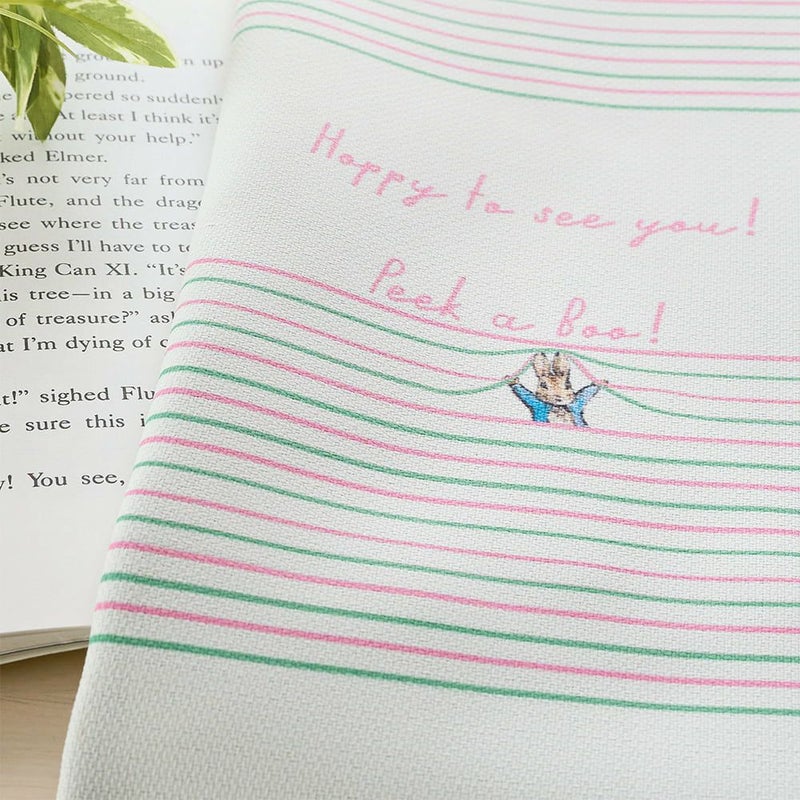 ground.
so suddenly
At least I think it's
your help."
ked Elmer.
's not very far from
Flute, and the drag
see where the treas
guess I'll have to te
King Can XI. "It's
is tree—in a big
of treasure?" as
at I'm dying of c
t!" sighed Flu
e sure this i
y! You see,
Hoppy to see you!
Peek a Boo!